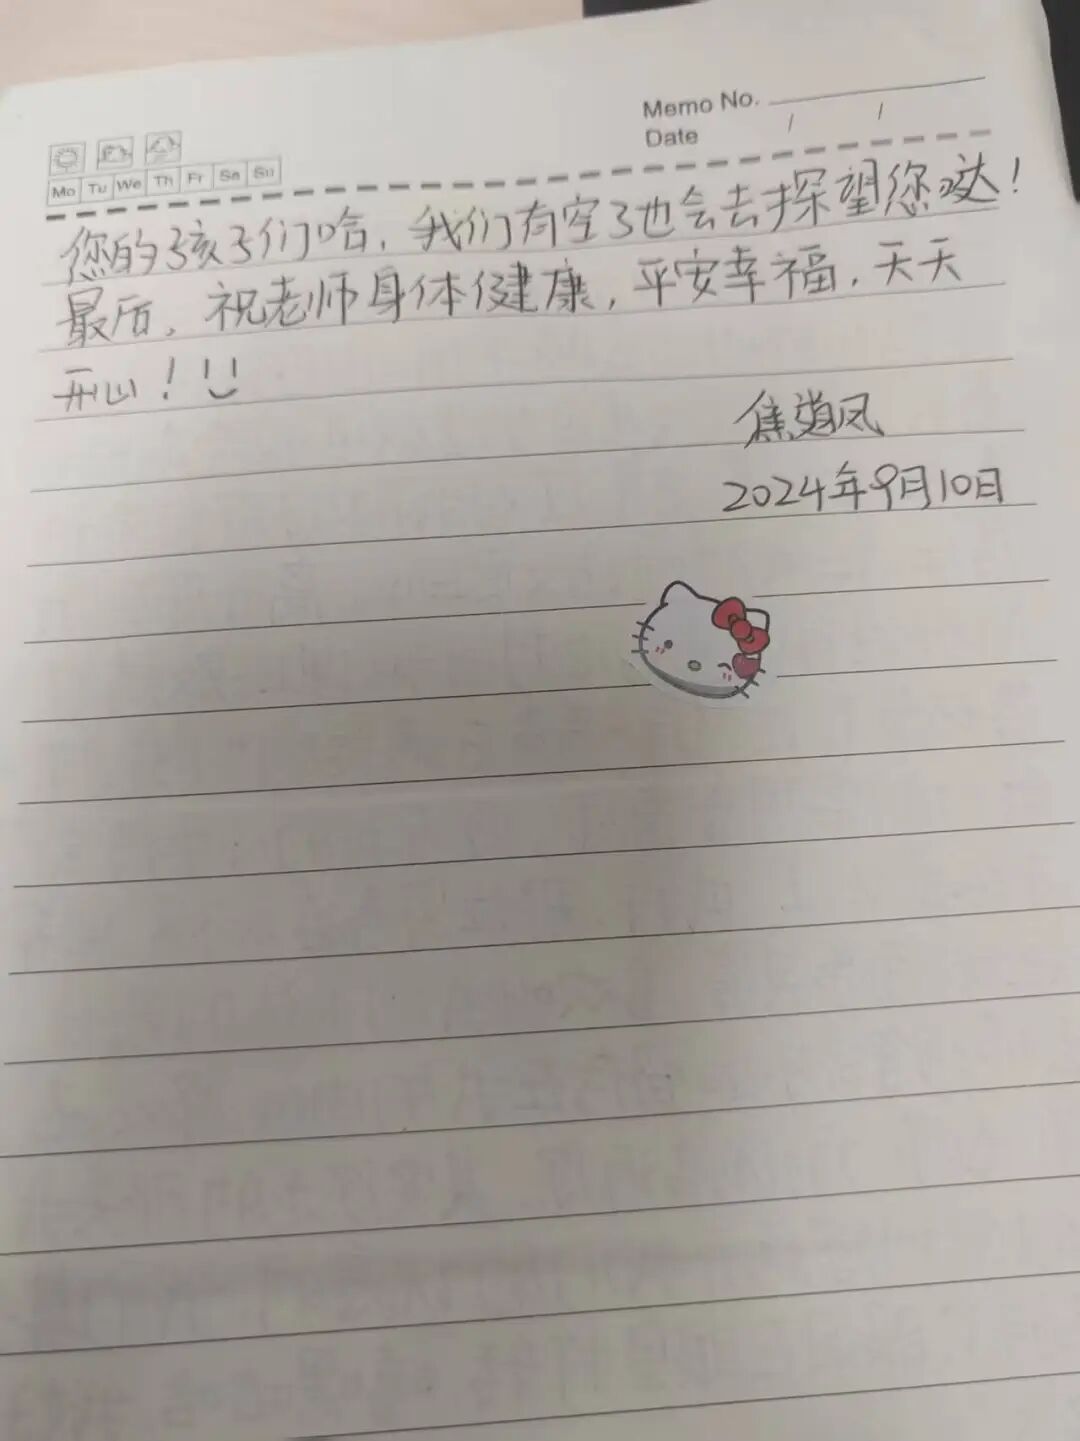 Memo No.
Date / /
Mo Tu We Th Fr Sa Su
您的孩子们哈,我们有空了也会去探望您哒!
最后,祝老师身体健康,平安幸福,天天
开心!
焦道凤
2024年9月10日